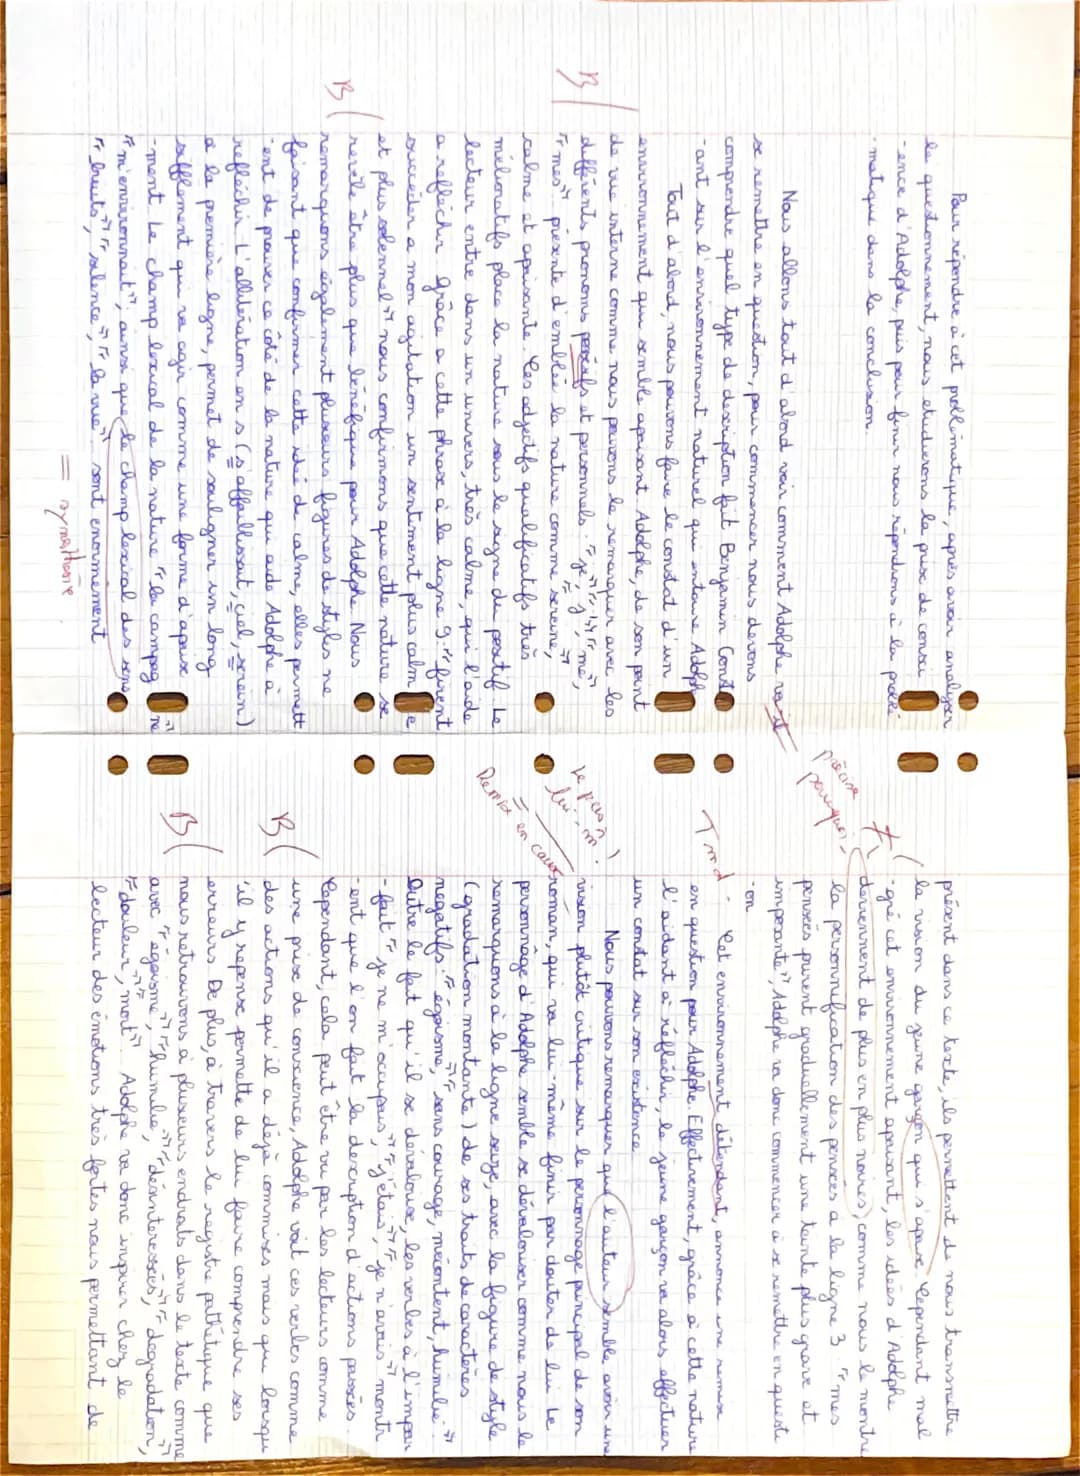 Pour répondre à cet problématique, après avoir analyser
le questionnement, nous étudierons la prise de consci
-ence d'Adolphe, puis pour finir nous répondrons à la probl
-matique dans la conclusion.
Nous allons tout d'abord voir comment Adolphe va-t
se remettre en question, pour commencer nous devons
comprendre quel type de description fait Benjamin Const
-ant sur l'environnement naturel qui entoure Adolph
Tout d'abord, nous pouvons faire le constat d'un
environnement qui semble apaisant Adolphe, de son point
B
de vue interne comme nous pouvons le remarquer avec les
différents pronoms et personnels : "je", "j'", "me",
"mes" présente d'emblée la nature comme sereine,
calme et apaisante. Ces adjectifs qualificatifs très
mélioratifs place la nature sous le signe du positif. Le
lecteur entre dans un univers, très calme, qui l'aide
a réfléchir grâce a cette phrase à la ligne 9 : "firent
succéder a mon agitation un sentiment plus calm e
et plus solennel" nous confirmons que cette nature se
B
revèle être plus que bénéfique pour Adolphe. Nous
remarquons également plusieurs figures de styles ne
faisant que confirmer cette idée de calme, elles permett
-ent de prouver ce côté de la nature qui aide Adolphe à
refléchir. L'allitération en s (s'affaiblissait, ciel, serein)
a la première ligne, permet de souligner un long
sifflement qui va agir comme une forme d'apaise
-ment. Le champ lexical de la nature "la campag ne"
"m'environnait", ainsi que le champ lexical des sens
"bruits", "silence", "la vue" sont énormément
= synesthésie
présent dans ce texte, ils permettent de nous transmettre
la vision du jeune garçon qui s'apaise. Cependant mal
-gré cet environnement apaisant, les idées d'Adolphe
deviennent de plus en plus noires, comme nous le montre
la personnification des pensées a la ligne 3 "mes
pensées prirent graduellement une teinte plus grave et
imposante", Adolphe va donc commencer a se remettre en questi
-on
précise
pourquoi
T md.
Cet environnement détendant, annonce une remise
en question pour Adolphe. Effectivement, grâce a cette nature
l'aidant a réfléchir, le jeune garçon va alors effectuer
un constat sur son existence
Nous pouvons remarquer que l'auteur semble avoir une
vision plutôt critique sur le personnage principal de son
roman, qui va lui-même finir par douter de lui. Le
personnage d'Adolphe semble se dévaloriser comme nous le
remarquons à la ligne seize, avec la figure de style
(gradation montante) de ses traits de caractères
négatifs : "égoïsme", "sans courage, mécontent, humilié".
Outre le fait qu'il se dévalorise, les verbes à l'impar
-fait "je ne m'occupais", "j'étais", "je n'avais" montr
-ent que l'on fait la description d'actions passées
= Remise en cause
Cependant, cela peut être vu par les lecteurs comme
une prise de conscience, Adolphe voit ces verbes comme
B
des actions qu'il a déjà commises mais qui lorsqu
'il y repense permette de lui faire comprendre ses
erreurs. De plus, à travers le registre pathétique que
nous retrouvons à plusieurs endroits dans le texte comme
B
avec "égoïsme", "humilié", "désintéressées", "dégradation",
"douleur", "mort". Adolphe va donc inspirer chez le
lecteur des émotions très fortes nous permettant de